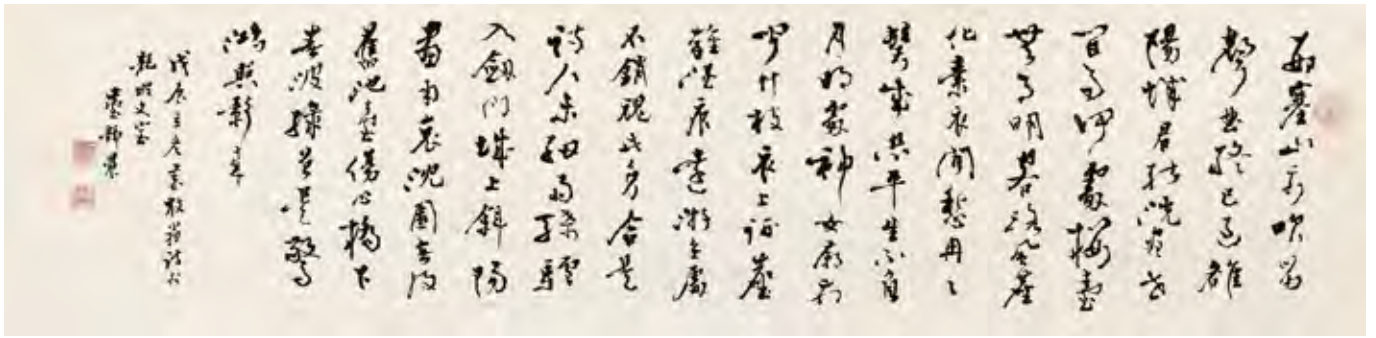 西塞山前吹笛
聲曲終已過雒
陽城君能洗盡世
間念何處樓臺
無月明客路風塵
化素衣閒愁冉冉
鬢成絲平生不負
月明處神女廟前
聞竹枝衣上征塵
雜酒痕遠遊無處
不銷魂此身合是
詩人未細雨騎驢
入劍門城上斜陽
畫角哀沈園無復
舊池臺傷心橋下
春波綠曾是驚
鴻照影來
戊辰立冬書放翁詩於